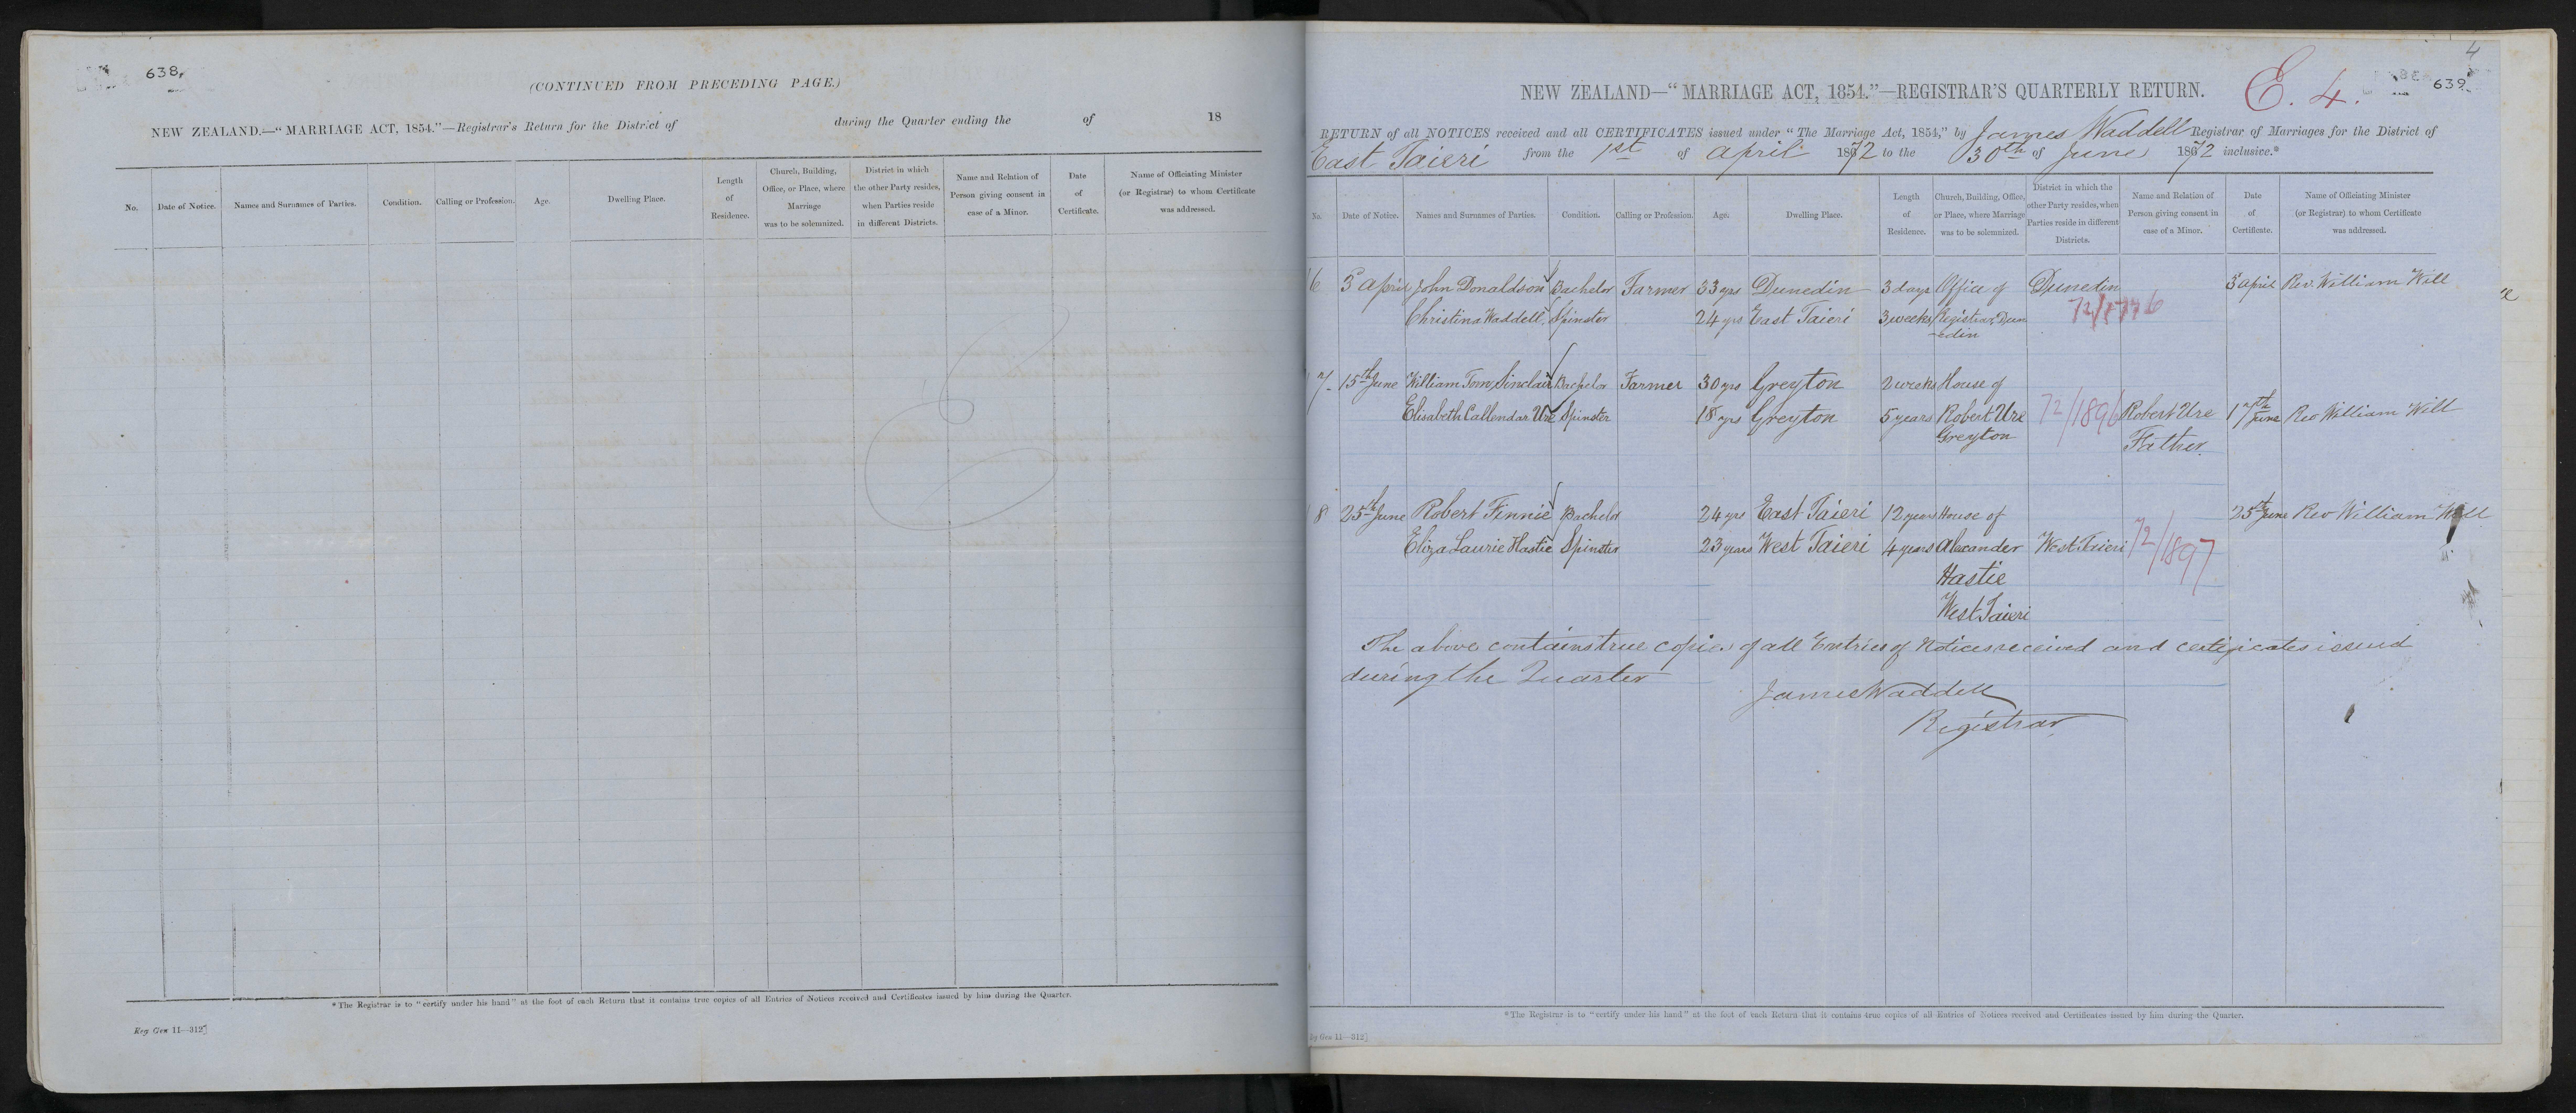 638.
(CONTINUED FROM PRECEDING PAGE.)
NEW ZEALAND.—“MARRIAGE ACT, 1854.”—Registrar's Return for the District of during the Quarter ending the of 18
No. Date of Notice. Names and Surnames of Parties. Condition. Calling or Profession. Age. Dwelling Place. Length of Residence. Church, Building, Office, or Place, where Marriage was to be solemnized. District in which the other Party resides, when Parties reside in different Districts. Name and Relation of Person giving consent in case of a Minor. Date of Certificate. Name of Officiating Minister (or Registrar) to whom Certificate was addressed.
*The Registrar is to “certify under his hand” at the foot of each Return that it contains true copies of all Entries of Notices received and Certificates issued by him during the Quarter.
Reg Gen 11—312]
4
639
E. 4.
NEW ZEALAND—“MARRIAGE ACT, 1854.”—REGISTRAR'S QUARTERLY RETURN.
RETURN of all NOTICES received and all CERTIFICATES issued under “The Marriage Act, 1854,” by James Waddell Registrar of Marriages for the District of
East Taieri from the 1st of April 1872 to the 30th of June 1872 inclusive.*
No. Date of Notice. Names and Surnames of Parties. Condition. Calling or Profession. Age. Dwelling Place. Length of Residence. Church, Building, Office, or Place, where Marriage was to be solemnized. District in which the other Party resides, when Parties reside in different Districts. Name and Relation of Person giving consent in case of a Minor. Date of Certificate. Name of Officiating Minister (or Registrar) to whom Certificate was addressed.
6 5 April John Donaldson Bachelor Farmer 33 yrs Dunedin 3 days Office of Dunedin 5 April Rev. William Will
Christina Waddell Spinster 24 yrs East Taieri 3 weeks Registrar, Dun
-edin
7 15th June William Tom Sinclair Bachelor Farmer 30 yrs Greyton 2 weeks House of
Elisabeth Callendar Ure Spinster 18 yrs Greyton 5 years Robert Ure 72/1896 Robert Ure 17th June Rev William Will
Greyton Father.
8 25th June Robert Finnie Bachelor 24 yrs East Taieri 12 years House of 25th June Rev William Will
Eliza Laurie Hastie Spinster 23 years West Taieri 4 years Alexander West Taieri 72/1897
Hastie
West Taieri
The above contains true copies of all Entries of Notices received and certificates issued
during the Quarter
James Waddell
Registrar
*The Registrar is to “certify under his hand” at the foot of each Return that it contains true copies of all Entries of Notices received and Certificates issued by him during the Quarter.
Gen 11—312]